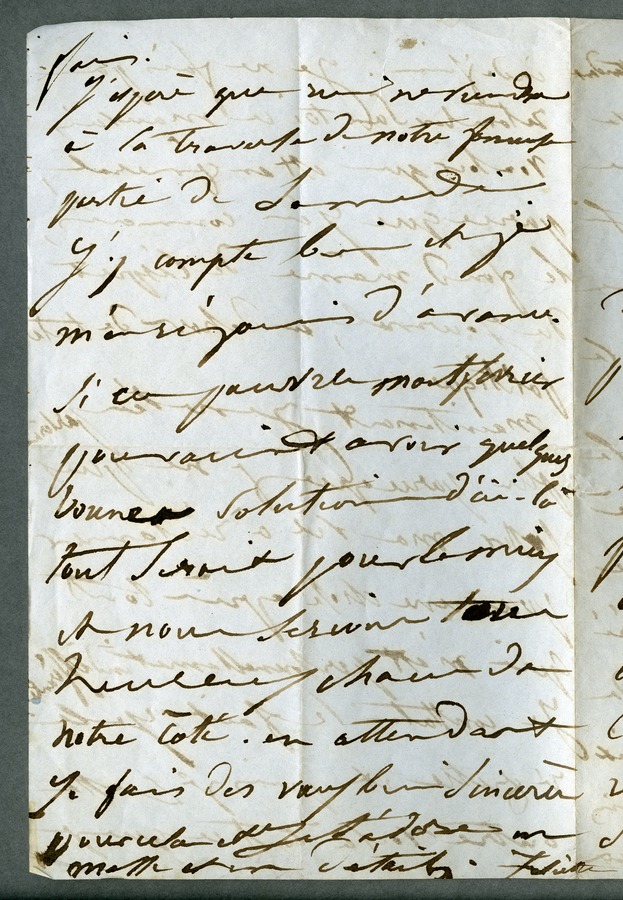 fois.
J'espère que rien ne viendra
à la traverse de notre fameuse
partie de Samedi
J'y compte bien et je
m'en réjouis d'avance.
Si ces pauvres
pouvaient avoir quelques
bonnes solutions d'ici-là
tout serait pour le mieux
et nous serions tous
heureux chacun de
notre côté. en attendant
Je fais des vœux bien sincères
pour cela et je t'adore en
masse et en détail. Juliette